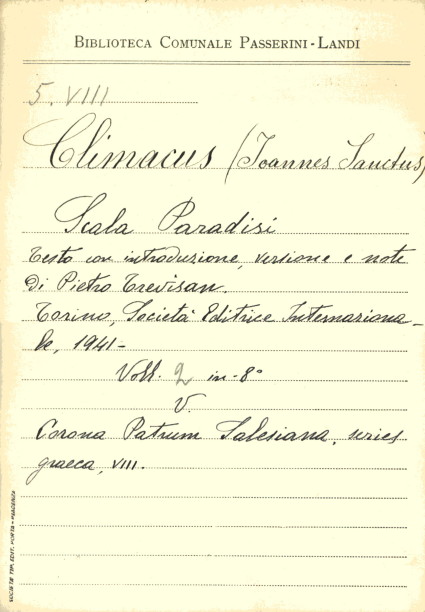 BIBLIOTECA COMUNALE PASSERINI-LANDI
5. VIII
Climacus (Joannes Sanctus)
Scala Paradisi
Testo con introduzione, versione e note
di Pietro Trevisan.
Torino, Società Editrice Internaziona-
le, 1941-
Voll. 2 in-8°
V.
Corona Patrum Salesiana, series
graeca, VIII.
SOCIETÀ TIP. EDIT. PORTA - PIACENZA